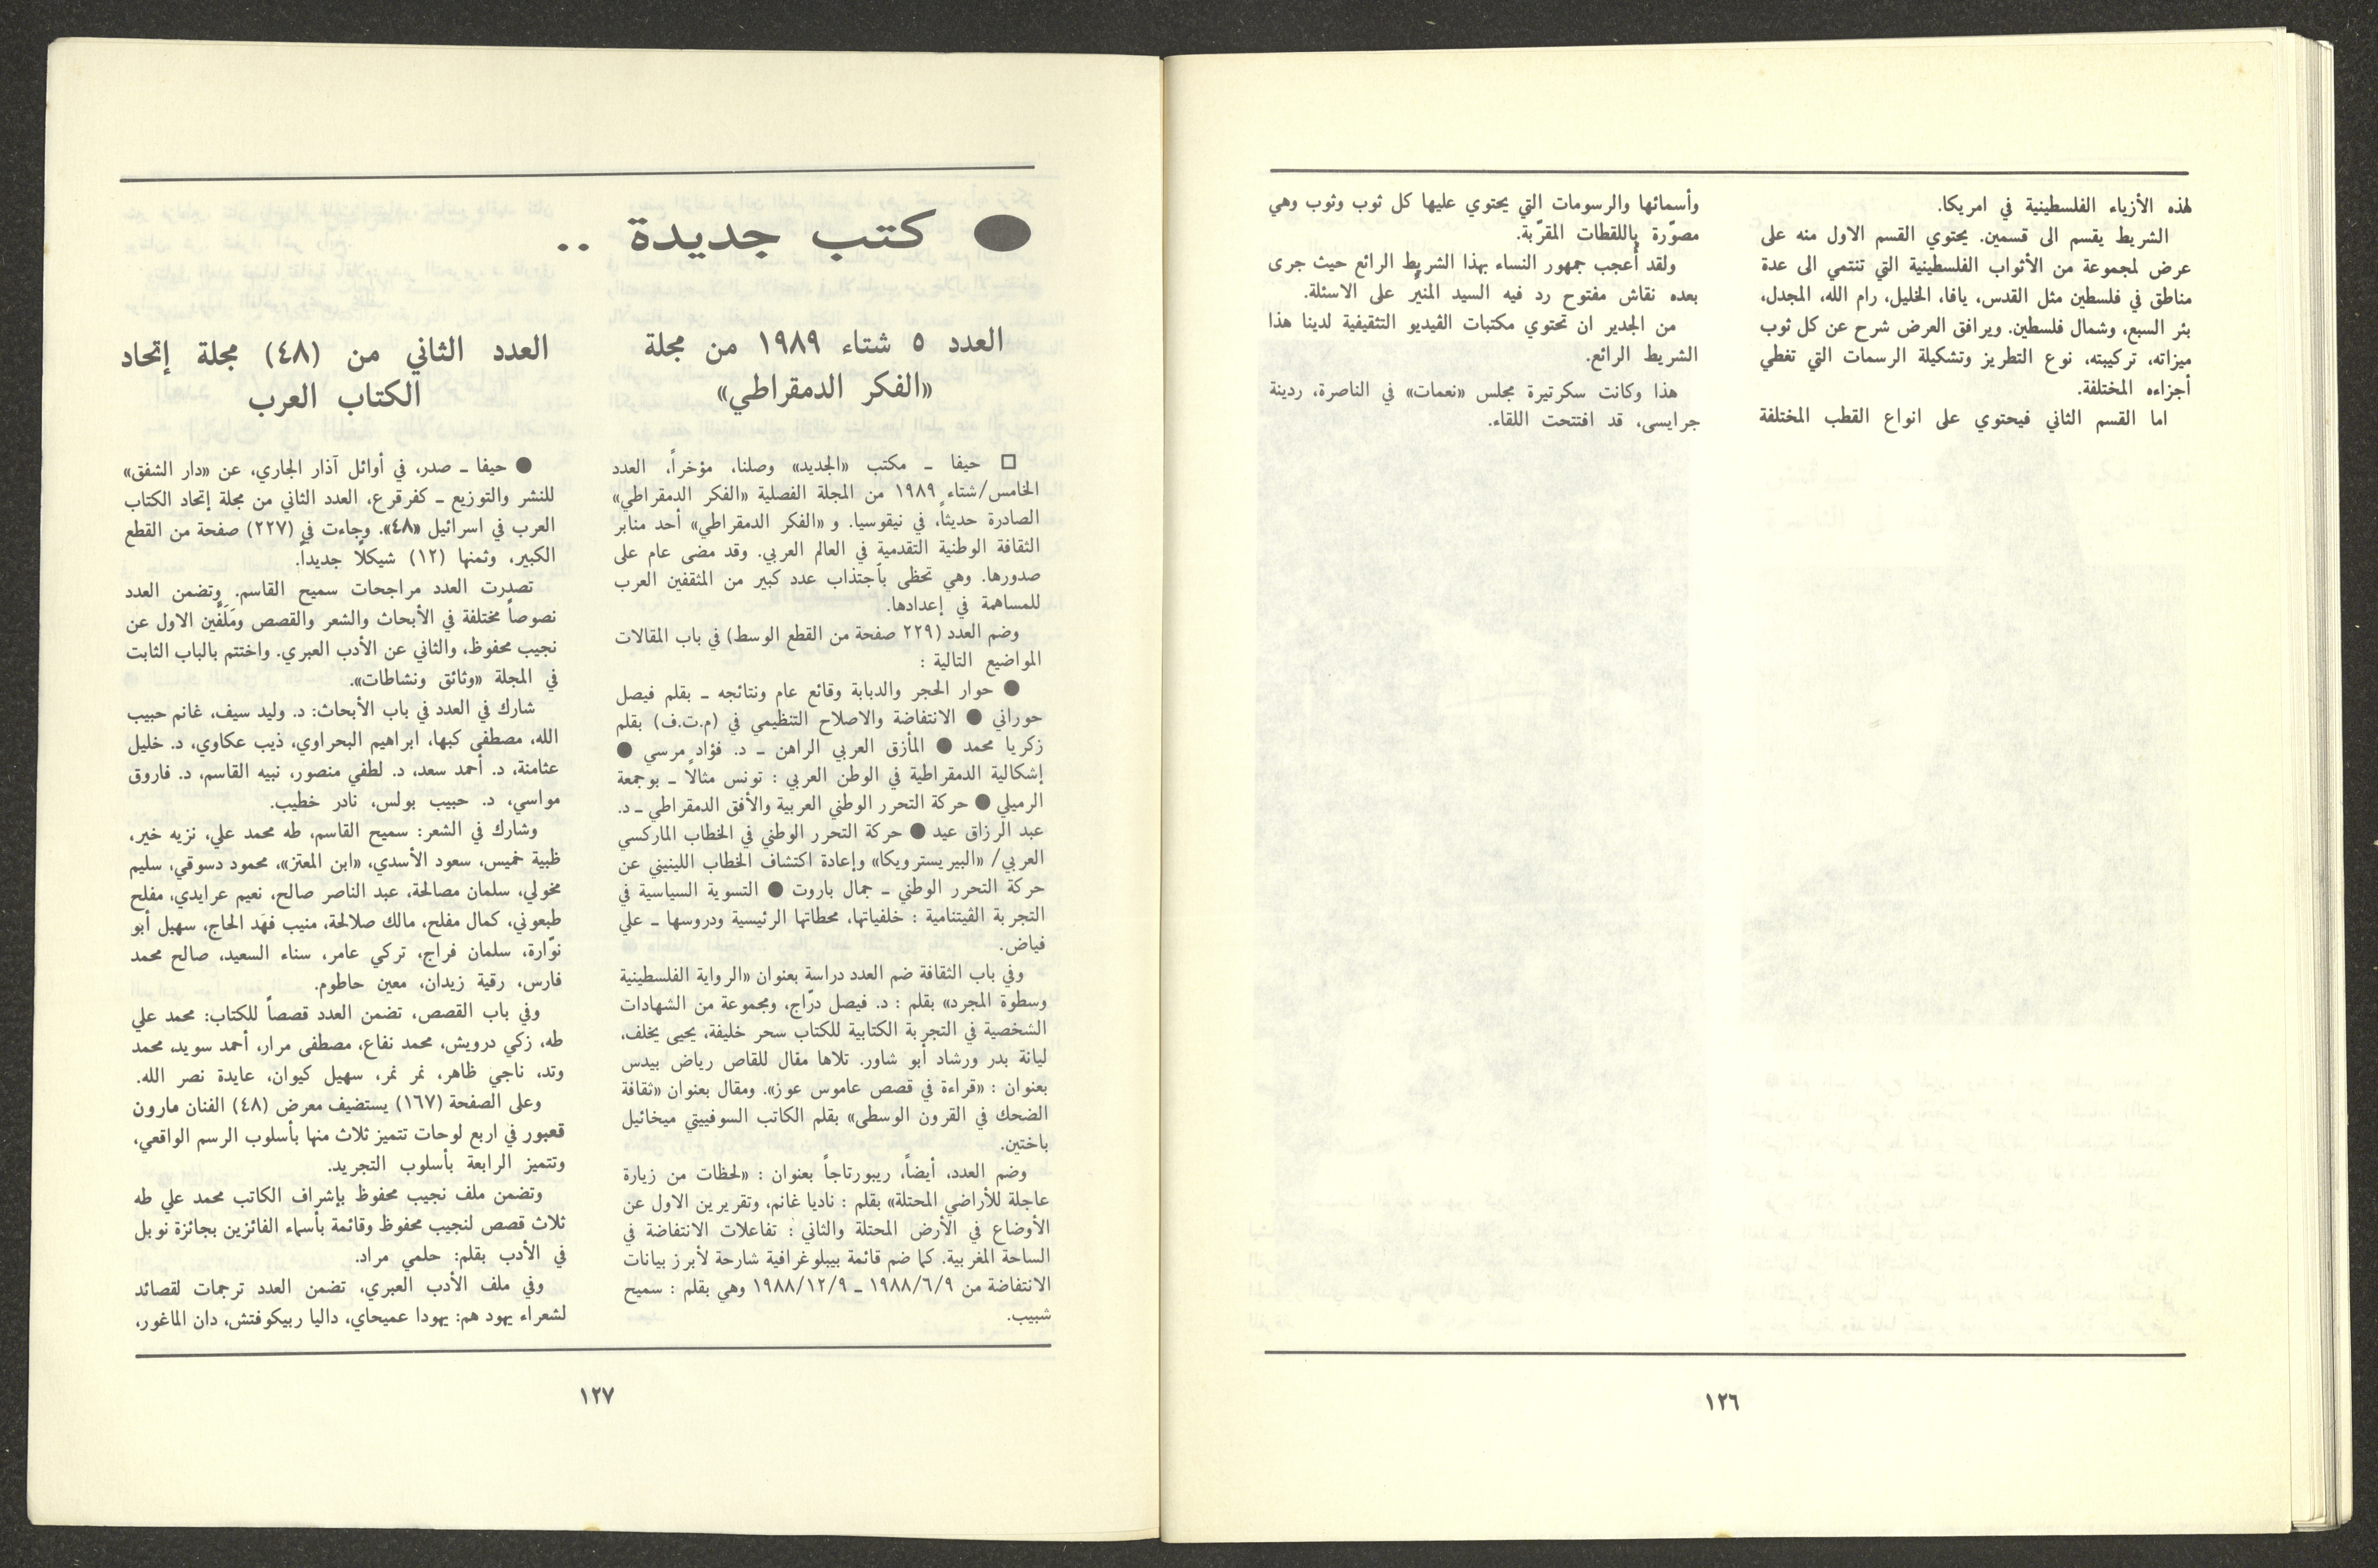 لهذه الأزياء الفلسطينية في امريكا.
الشريط يقسم الى قسمين. يحتوي القسم الاول منه على
عرض لمجموعة من الأثواب الفلسطينية التي تنتمي الى عدة
مناطق في فلسطين مثل القدس، يافا، الخليل، رام الله، المجدل،
بئر السبع، وشمال فلسطين. ويرافق العرض شرح عن كل ثوب
ميزاته، تركيبته، نوع التطريز وتشكيلة الرسمات التي تغطي
أجزاءه المختلفة.
اما القسم الثاني فيحتوي على انواع القطب المختلفة
وأسمائها والرسومات التي يحتوي عليها كل ثوب وثوب وهي
مصوّرة باللقطات المقرّبة.
ولقد أعجب جمهور النساء بهذا الشريط الرائع حيث جرى
بعده نقاش مفتوح رد فيه السيد المنيّر على الاسئلة.
من الجدير ان تحتوي مكتبات الڤيديو التثقيفية لدينا هذا
الشريط الرائع.
هذا وكانت سكرتيرة مجلس «نعمات» في الناصرة، ردينة
جرايسى، قد افتتحت اللقاء.
١٢٦
● كتب جديدة ..
العدد ٥ شتاء ١٩٨٩ من مجلة
«الفكر الدمقراطي»
□ حيفا ــ مكتب «الجديد» وصلنا، مؤخراً، العدد
الخامس/شتاء ١٩٨٩ من المجلة الفصلية «الفكر الدمقراطي»
الصادرة حديثاً، في نيقوسيا. و «الفكر الدمقراطي» أحد منابر
الثقافة الوطنية التقدمية في العالم العربي. وقد مضى عام على
صدورها. وهي تحظى بآجتذاب عدد كبير من المثقفين العرب
للمساهمة في إعدادها.
وضم العدد (٢٢٩ صفحة من القطع الوسط) في باب المقالات
المواضيع التالية :
● حوار الحجر والدبابة وقائع عام ونتائجه ــ بقلم فيصل
حوراني ● الانتفاضة والاصلاح التنظيمي في (م.ت.ف) بقلم
زكريا محمد ● المأزق العربي الراهن ــ د. فؤاد مرسي ●
إشكالية الدمقراطية في الوطن العربي : تونس مثالاً ــ بوجمعة
الرميلي ● حركة التحرر الوطني العربية والأفق الدمقراطي ــ د.
عبد الرزاق عيد ● حركة التحرر الوطني في الخطاب الماركسي
العربي/ «البيريسترويكا» وإعادة اكتشاف الخطاب اللينيني عن
حركة التحرر الوطني ــ جمال باروت ● التسوية السياسية في
التجربة الڤيتنامية : خلفياتها، محطاتها الرئيسية ودروسها ــ علي
فياض.
وفي باب الثقافة ضم العدد دراسة بعنوان «الرواية الفلسطينية
وسطوة المجرد» بقلم : د. فيصل درّاج، ومجموعة من الشهادات
الشخصية في التجربة الكتابية للكتاب سحر خليفة، يحيى يخلف،
ليانة بدر ورشاد أبو شاور. تلاها مقال للقاص رياض بيدس
بعنوان : «قراءة في قصص عاموس عوز». ومقال بعنوان «ثقافة
الضحك في القرون الوسطى» بقلم الكاتب السوفييتي ميخائيل
باختين.
وضم العدد، أيضاً، ريبورتاجاً بعنوان : «لحظات من زيارة
عاجلة للأراضي المحتلة» بقلم : ناديا غانم، وتقريرين الاول عن
الأوضاع في الأرض المحتلة والثاني : تفاعلات الانتفاضة في
الساحة المغربية. كما ضم قائمة بيبلوغرافية شارحة لأبرز بيانات
الانتفاضة من ١٩٨٨/٦/٩ ــ ١٩٨٨/١٢/٩ وهي بقلم : سميح
شبيب.
العدد الثاني من (٤٨) مجلة إتحاد
الكتاب العرب
● حيفا ــ صدر، في أوائل آذار الجاري، عن «دار الشفق»
للنشر والتوزيع ــ كفرقرع، العدد الثاني من مجلة إتحاد الكتاب
العرب في اسرائيل «٤٨». وجاءت في (٢٢٧) صفحة من القطع
الكبير، وثمنها (١٢) شيكلاً جديداً.
تصدرت العدد مراجحات سميح القاسم. وتضمن العدد
نصوصاً مختلفة في الأبحاث والشعر والقصص ومَلَفَّين الاول عن
نجيب محفوظ، والثاني عن الأدب العبري. واختتم بالباب الثابت
في المجلة «وثائق ونشاطات».
شارك في العدد في باب الأبحاث: د. وليد سيف، غانم حبيب
الله، مصطفى كبها، ابراهيم البحراوي، ذيب عكاوي، د. خليل
عثامنة، د. أحمد سعد، د. لطفي منصور، نبيه القاسم، د. فاروق
مواسي، د. حبيب بولس، نادر خطيب.
وشارك في الشعر: سميح القاسم، طه محمد علي، نزيه خير،
ظبية خميس، سعود الأسدي، «ابن المعتز»، محمود دسوقي، سليم
مخولي، سلمان مصالحة، عبد الناصر صالح، نعيم عرايدي، مفلح
طبعوني، كمال مفلح، مالك صلالحة، منيب فهَد الحاج، سهيل أبو
نوّارة، سلمان فراج، تركي عامر، سناء السعيد، صالح محمد
فارس، رقية زيدان، معين حاطوم.
وفي باب القصص، تضمن العدد قصصاً للكتاب: محمد علي
طه، زكي درويش، محمد نفاع، مصطفى مرار، أحمد سويد، محمد
وتد، ناجي ظاهر، نمر نمر، سهيل كيوان، عايدة نصر الله.
وعلى الصفحة (١٦٧) يستضيف معرض (٤٨) الفنان مارون
قعبور في اربع لوحات تتميز ثلاث منها بأسلوب الرسم الواقعي،
وتتميز الرابعة بأسلوب التجريد.
وتضمن ملف نجيب محفوظ بإشراف الكاتب محمد علي طه
ثلاث قصص لنجيب محفوظ وقائمة بأسماء الفائزين بجائزة نوبل
في الأدب بقلم: حلمي مراد.
وفي ملف الأدب العبري، تضمن العدد ترجمات لقصائد
لشعراء يهود هم: يهودا عميحاي، داليا ربيكوفتش، دان الماغور،
١٢٧